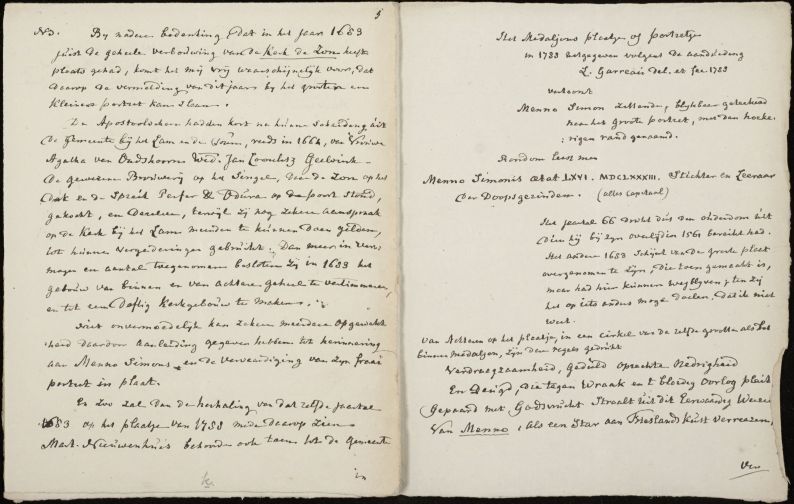 5
No 3. By nadere bedenking, dat in het jaar 1683
juist de geheele verbouwing van de Kerk de Zon heeft
plaats gehad, komt het mij vrij waarschijnelijk voor, dat
daarop de vermelding van dit jaar by het grootere en
kleinere portret kan slaan.
De Apostoolschen hadden kort na hunne scheiding uit
de gemeente bij het Lam en de Toren, reeds in 1664, van Vrouwe
Agatha van Oudshoorn Wed. Jan Geelvink
de gewezene Brouwerij op het Singel, dan de Zon op het
dak en de Spreuk op de poort stond,
gekocht, en dezelve, terwijl zij nog zekere aanspraak
op de Kerk bij het Lam meenden te kunnen doen gelden,
tot hunne vergaderingen gebruikt. Dan meer in ver-
mogen en aantal toegenomen besloten zij in 1683 het
gebouw van binnen en van achteren geheel te vertimmeren,
en tot een deftig Kerkgebouw te maken.
Niet onvermoedelijk kan zekere meerdere opgewekt-
heid daardoor aanleiding gegeven hebben tot herinnering
aan Menno Simons en de vervaardiging van zyn fraai
portret in plaat.
En zoo zal dan de herhaling van dat zelfde jaartal
1683 op het plaatje van 1783 mede daarop zien.
Mart. Nieuwenhuis behoorde ook toen tot de gemeente
in
Het Medaljons plaatje of portretje
in 1783 uitgegeven volgens de aanduiding
L. Garreau del. et fec. 1783
vertoont
Menno Simon zittende, blijkbaar geteekend
naar het groote portret, met den hoeke-
rigen rand genaamd.
Rondom leest men
Menno Simonis ætat LXVI. MDCLXXXIII. Stichter en Leeraar
der Doopsgezinden. (alles capitaal)
Het jaartal 66 drukt dus den ouderdom uit
dien hij bij zyn overlijden 1561 bereikt had.
Het andere 1683 schijnt van de groote plaat
overgenomen te zijn, die toen gemaakt is,
maar had hier kunnen wegblijven; ten zij
het op iets anders moge doelen, dat ik niet
weet.
Van achteren op het plaatje, in een cirkel van de zelfde grootte als het
binnen medaljon, zijn deze regels gedrukt
Verdraagzaamheid, geduld oprechte Nedrigheid
En Deugd, die tegen Wraak en 't bloedig oorlog pleit
Gepaard met Godsvrucht straalt uit dit Eerwaardig Wezen
Van Menno, als een Star aan Frieslands Kust verrezen.